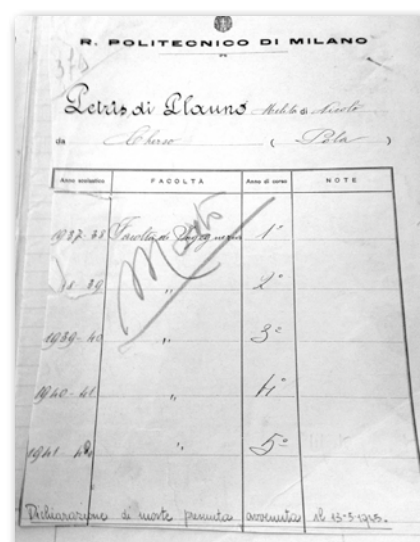 R. POLITECNICO DI MILANO
Petris, di Plauno Melita di Nicolò
da Cherso ( Pola )
Anno scolastico FACOLTÀ Anno di corso NOTE
1937-38 Facoltà di Ingegneria 1°
38 39 2°
1939-40 " 3°
Morto
1940-41 " 4°
1941 42 " 5°
Dichiarazione di morte presunta avvenuta il 13-5-1945.